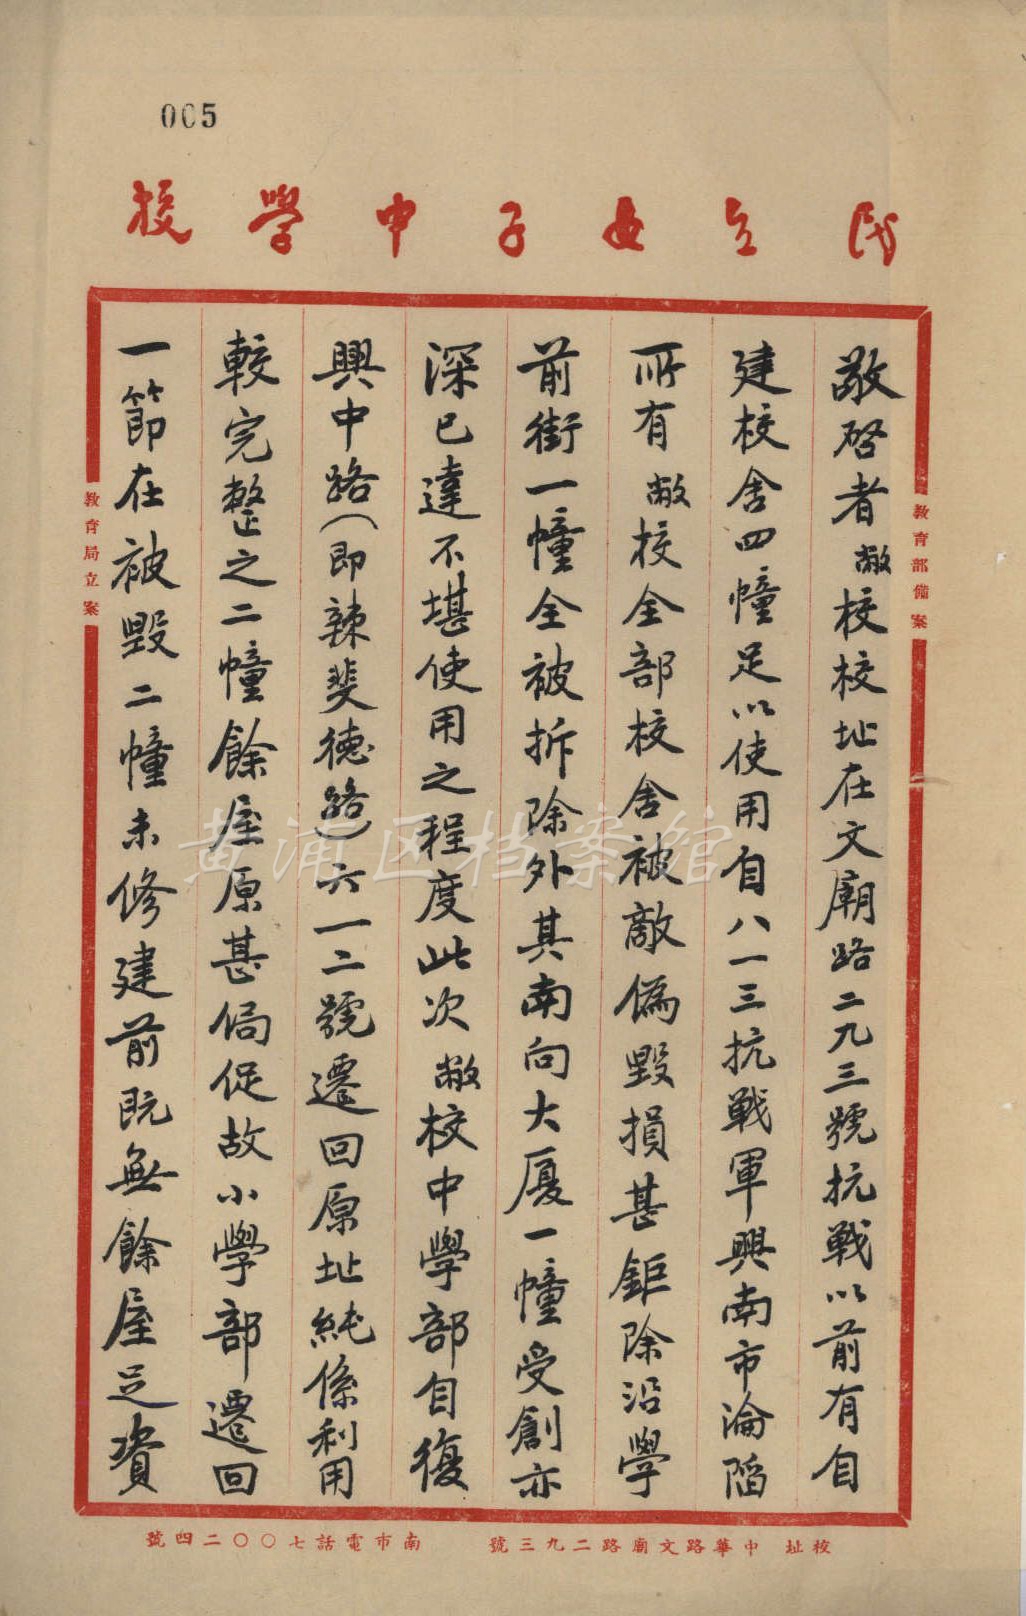 005
民立女子中學校
教育部備案
敬啓者敝校校址在文廟路二九三號抗戰以前有自
建校舍四幢足以使用自八一三抗戰軍興南市淪陷
所有敝校全部校舍被敵僞毀損甚鉅除沿學
前街一幢全被拆除外其南向大厦一幢受創亦
深已達不堪使用之程度此次敝校中學部自復
興中路(即辣斐德路)六一二號遷回原址純係利用
較完整之二幢餘屋原甚侷促故小學部遷回
一節在被毀二幢未修建前旣無餘屋足資
教育局立案
校址 中華路文廟路二九三號 南市電話七〇〇二四號
黄浦区档案馆